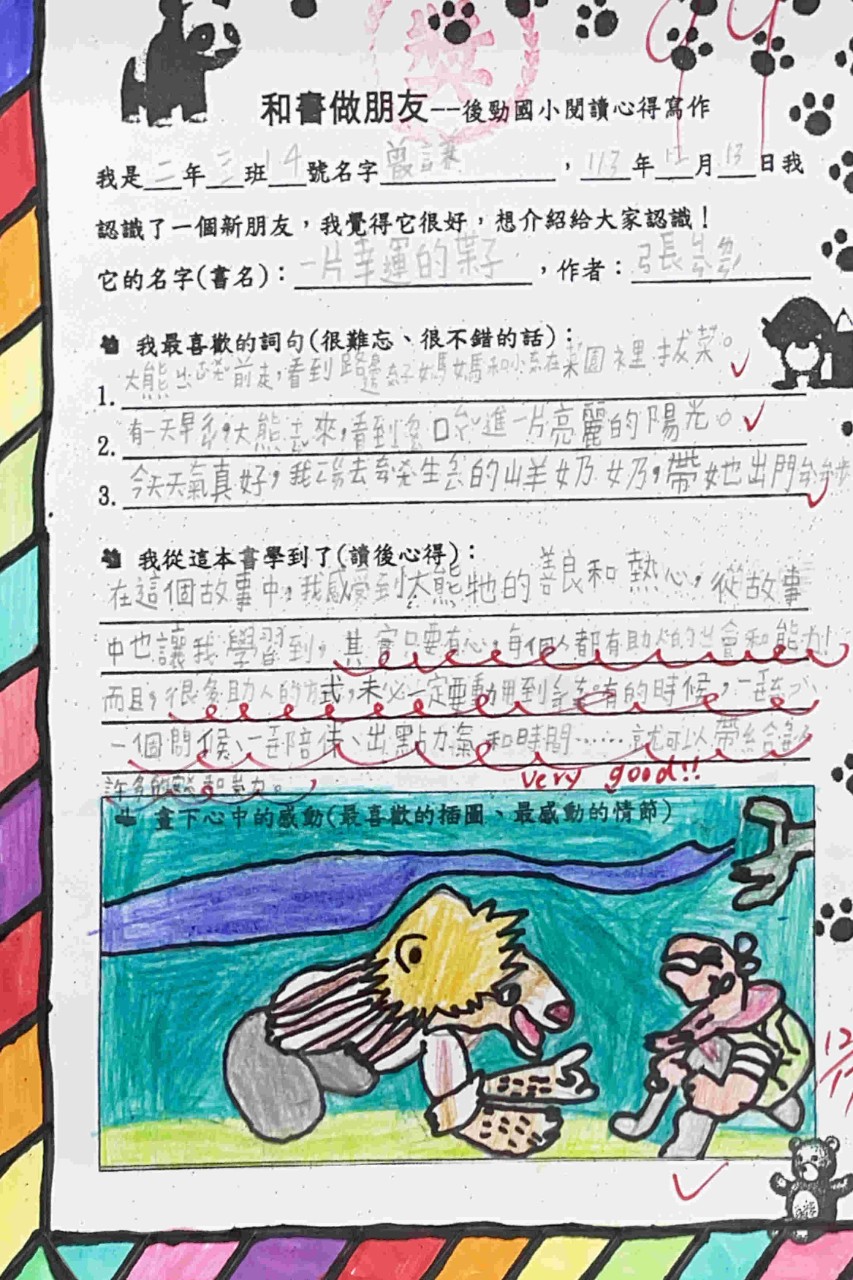 獎
和書做朋友--後勁國小閱讀心得寫作
我是二年三班14號名字曾謙，113年12月13日我
認識了一個新朋友，我覺得它很好，想介紹給大家認識！
它的名字(書名)：一片幸運的葉子，作者：張
我最喜歡的詞句(很難忘、很不錯的話)：
1. 大熊出ㄈㄚ前走，看到路邊 媽媽和小 在菜園裡拔菜。
2. 有一天早 ，大熊 來，看到 口 進一片亮麗的陽光。
3. 今天天氣真好，我 去 生 的山羊奶奶，帶她出門 步
我從這本書學到了(讀後心得)：
在這個故事中，我感覺到大熊牠的善良和熱心，從故事
中也讓我學習到，其實只要有心，每個人都有助人的 會和能力！
而且，很多助人的方式，未必一定要動用到 有的時候，一
一個問候、一 陪伴、出點力氣和時間……就可以帶給
許多的
very good!!
畫下心中的感動(最喜歡的插圖、最感動的情節)
12/17